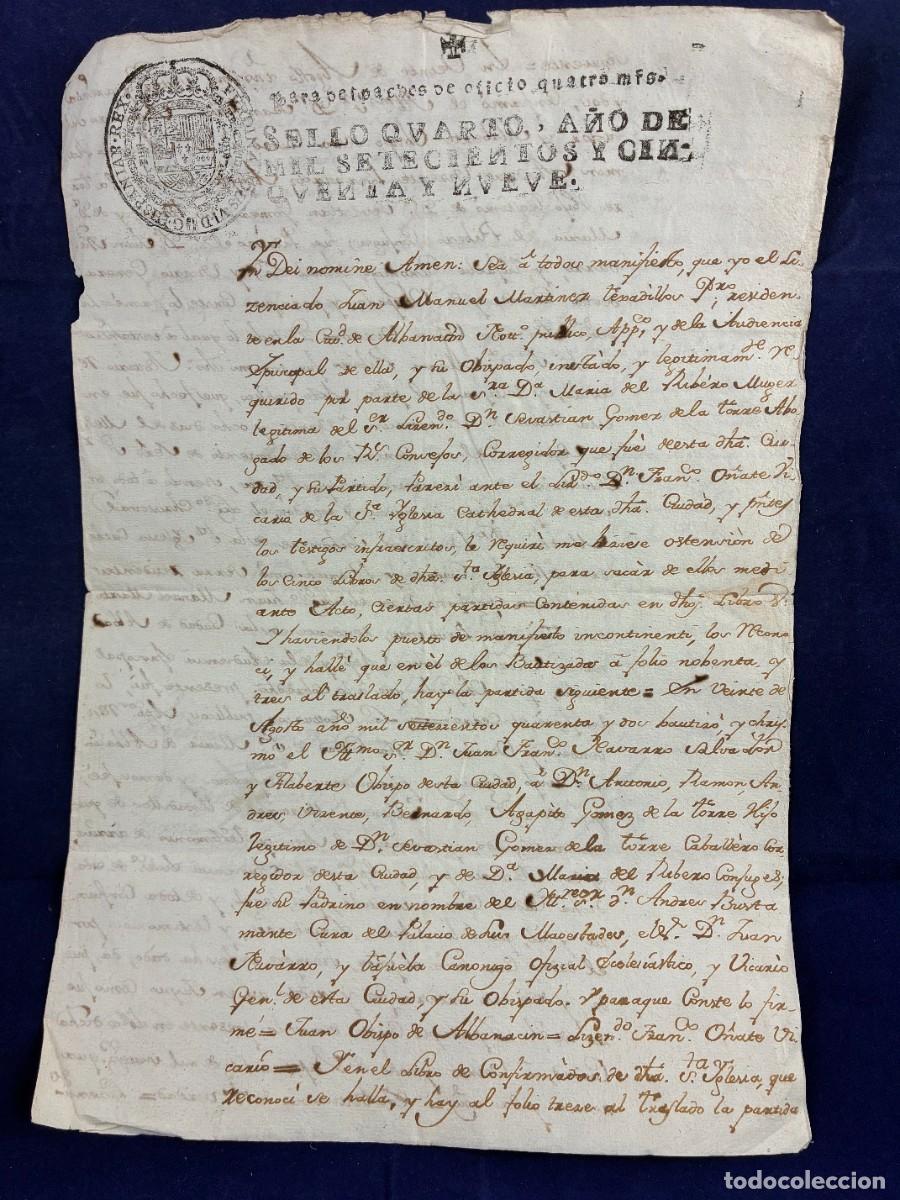 Para despachos de oficio quatro mrs.
SELLO QVARTO, AÑO DE
MIL SETECIENTOS Y CIN-
QVENTA Y NVEVE.
HISPANIAR. REX
In Dei nomine Amen: Sea â todos manifiesto, que yo el Li-
zenciado Juan Manuel Martinez Texadillos Pro. residen-
te en la Ciud. de Albarracin Noto. publico, Appco, y de la Audiencia
Episcopal de ella, y su Obispado instado, y legitimamte. re-
querido por parte de la Sra. Da. Maria del Ribero Muger
legitima del Sr. Lizendo. Dn. Sevastian Gomez de la Torre Abo-
gado de los Rs. Consejos, Corregidor que fuè de esta dha. Ciu-
dad, y su Partido, Parezi ante el Lizdo. Dn. Franco. Oñate Vi-
cario de la Sta. Yglesia Cathedral de esta dha. Ciudàd, y pntes.
los testigos infraescritos, le requiri me hiziese ostensiòn de
los Cinco Libros de dha. Sta. Yglesia, para sacàr de ellos medi-
ante Acto, ciertas partidas Contenidas en dhos. Libros.
Y haviendolos puesto de manifiesto incontinenti, los recono-
ci, y hallè que en èl de los Bautizados â folio nobenta y
tres al traslado, hay la partida siguiente = En Veinte de
Agosto año mil setecientos quarenta y dos bautizò, y chris-
mò el Illmo. Sr. Dn. Juan Franco. Navarro Salvadòr
y Gilaberte Obispo de esta Ciudad, â Dn. Antonio, Ramon An-
dres, Vizente, Bernardo, Agapito Gomez de la Torre Hijo
legitimo de Dn. Sevastian Gomez de la Torre Caballèro Cor-
regidor de esta Ciudad, y de Da. Maria del Ribero Conjuges;
fue su Padrino en nombre del Sr. Dn. Andres Busta
mante Cura del Palacio de sus Magestades, el Dn. Juan
Navàrro, y Canonigo Ofizial Eclesiàstico, y Vicàrio
Genl. de esta Ciudad, y su Obispado. Y para que Conste lo fir-
mè = Juan Obispo de Albarracin = Lizendo. Franco. Oñate Vi-
carìo = Y en el Libro de Confirmàdos de dha. Sta. Yglesia, que
reconoci se halla, y hay al folio treze al traslado la partida
todocoleccion